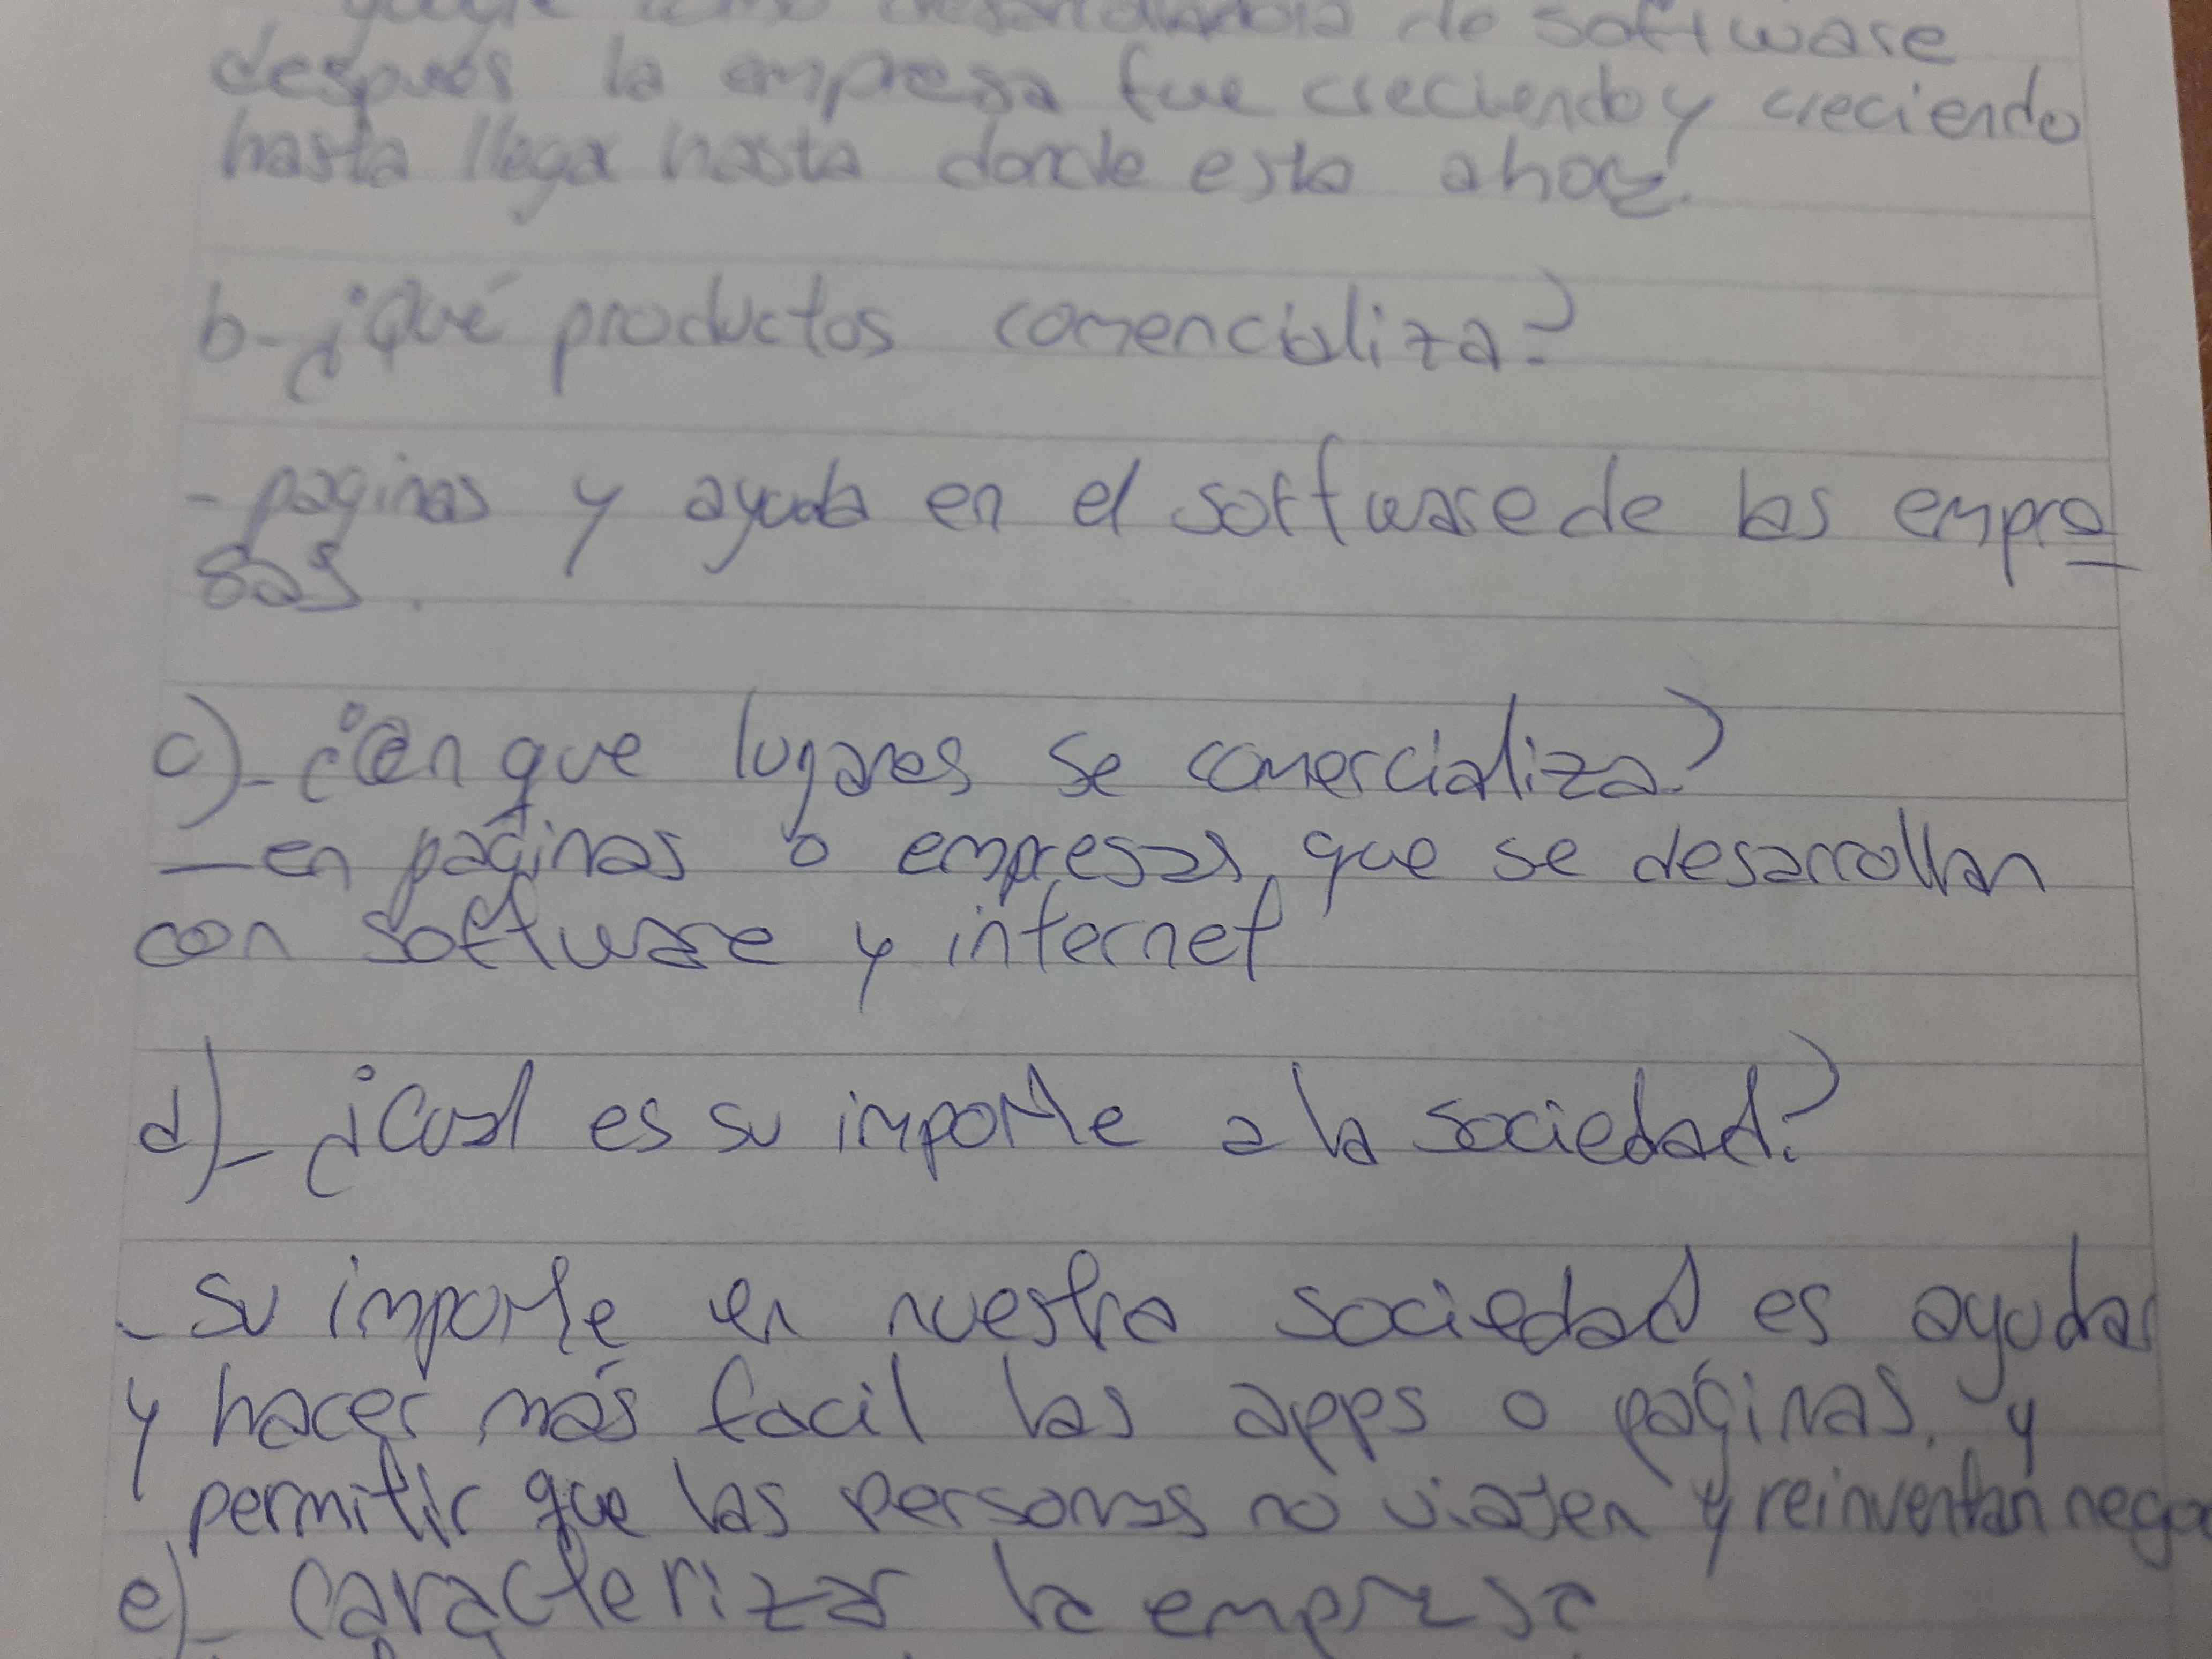 google como desarrolladora de software
después la empresa fue creciendo y creciendo
hasta llegar hasta donde esta ahora.
b- ¿Qué productos comencializa?
- paginas y ayuda en el software de las empre
sas.
c)- ¿en que lugares se comercializa?
- en páginas o empresas, que se desarrollan
con software y internet
d)- ¿Cual es su importe a la sociedad?
- su importe en nuestra sociedad es ayudar
y hacer más facil las apps o páginas, y
permitir que las personas no viajen y reinventan
e)- caracterizar la empresa